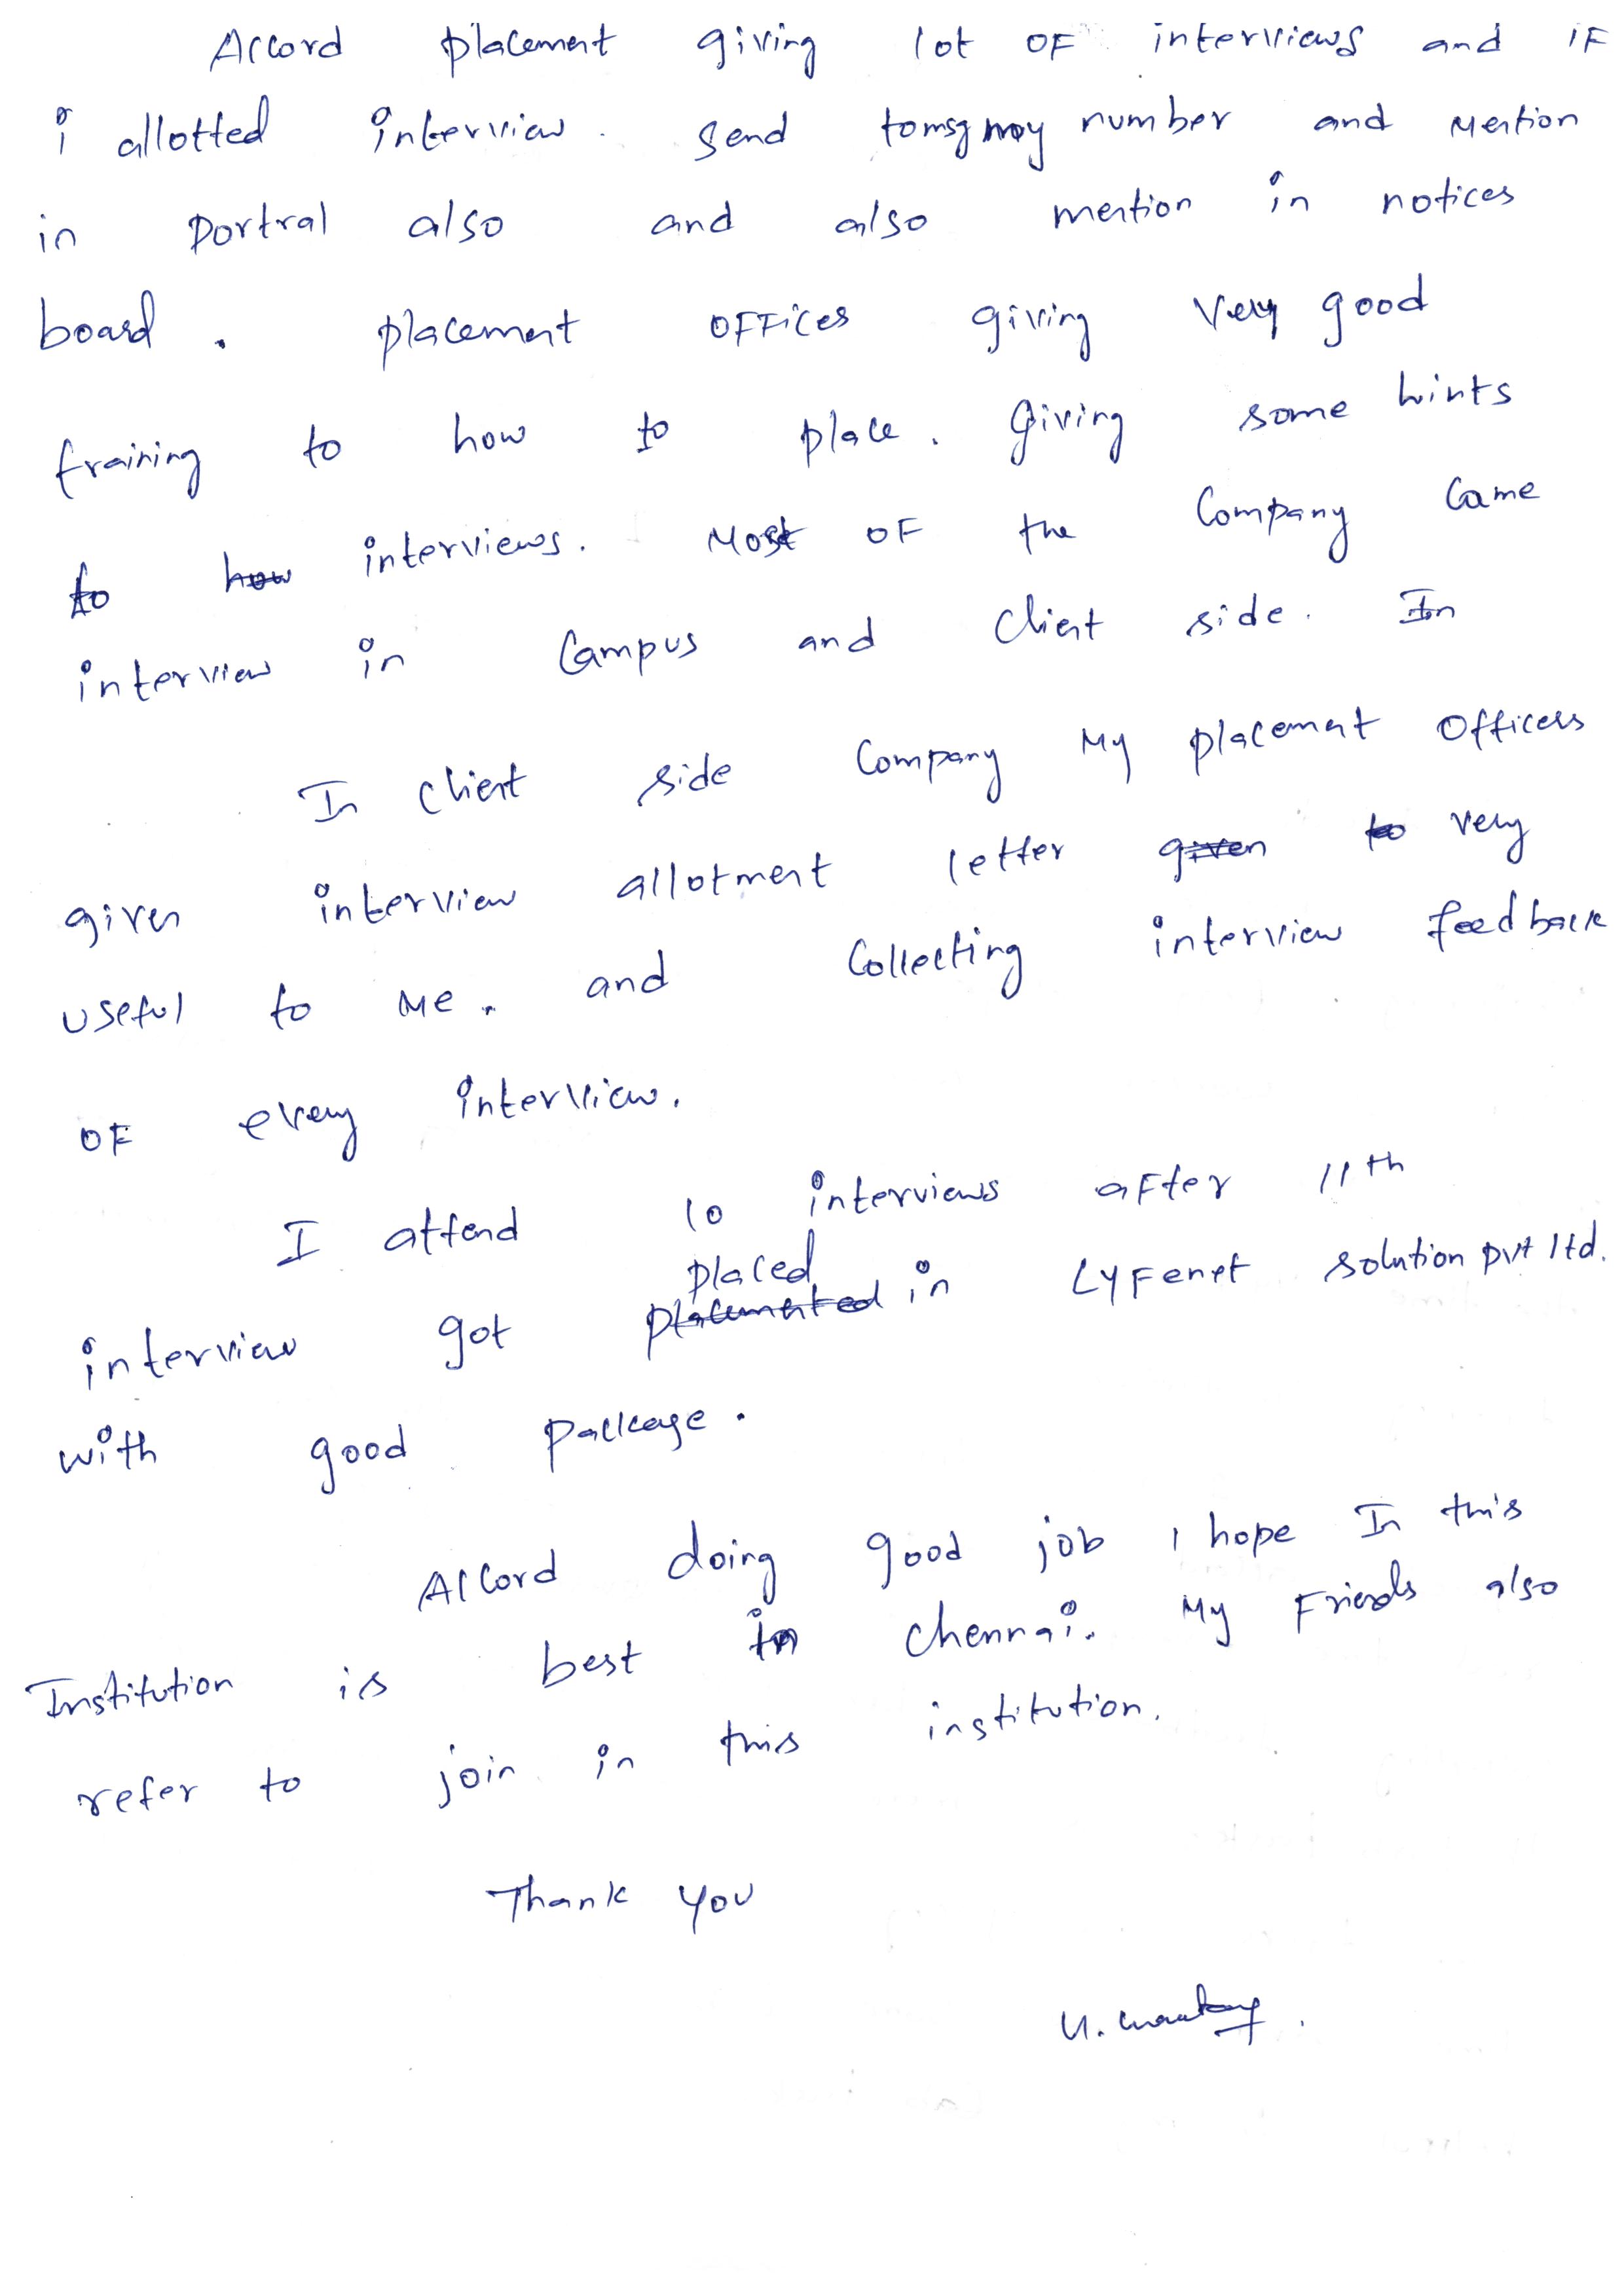 Accord placement giving lot OF interviews and iF
i allotted interview. send to msg my number and Mention
in portral also and also mention in notices
board. placement OFFices giving very good
training to how to place. Giving some hints
to interviews. Most OF the Company Came
interview in Campus and Client side. In
In client side Company My placement Officers
given interview allotment letter very
useful to Me. and Collecting interview feedback
OF every interview.
I attend 10 interviews aFter 11th
placed
interview got in LYFenet solution pvt ltd.
with good package.
Accord doing good job I hope In this
Institution is best in chennai. My Friends also
refer to join in this institution.
Thank You